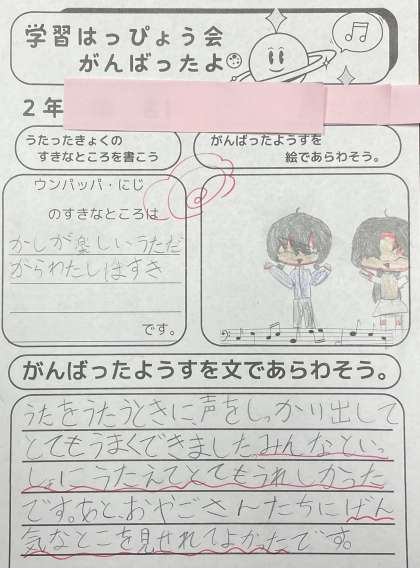 学習はっぴょう会
がんばったよ
2年
うたったきょくの
すきなところを書こう
がんばったようすを
絵であらわそう。
ウンパッパ・にじ
のすきなところは
かしが楽しいうただ
からわたしはすき
です。
がんばったようすを文であらわそう。
うたをうたうときに、声をしっかり出して
とてもうまくできました。みんなといっ
しょにうたえてとてもうれしかった
です。あと、おやごさんたちにげん
気なとこを見せれてよかったです。